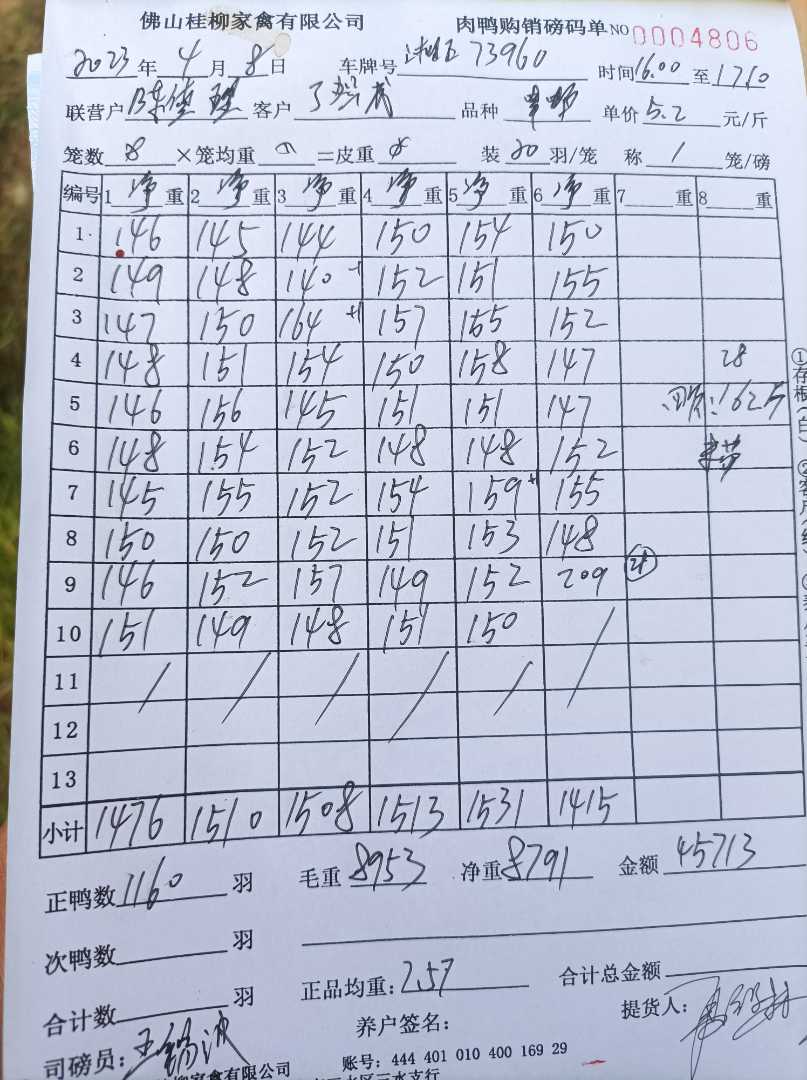 佛山桂柳家禽有限公司 肉鸭购销磅码单 NO 0004806
2023年 4月 8日 车牌号 73960 时间 16.00 至 1710
联营户 陈 客户 品种 单价 5.2 元/斤
笼数 × 笼均重 = 皮重 装 20 羽/笼 称 1 笼/磅
编号 1 净重 2 净重 3 净重 4 净重 5 净重 6 净重 7 重 8 重
1 146 145 144 150 154 150
2 149 148 140 -1 152 151 155
3 147 150 164 +1 157 165 152
4 148 151 154 150 158 147 28
5 146 156 145 151 151 147 1625
6 148 154 152 148 148 152
7 145 155 152 154 159 +1 155
8 150 150 152 151 153 148
9 146 152 157 149 152 209 28
10 151 149 148 151 150
11
12
13
小计 1476 1510 1508 1513 1531 1415
正鸭数 1160 羽 毛重 8953 净重 8791 金额 45713
次鸭数 羽
合计数 羽 正品均重: 7.57 合计总金额
养户签名: 提货人:
司磅员: 王锡波
柳家禽有限公司 账号: 444 401 010 400 169 29
三水区三水支行
①存根(白)
②客户